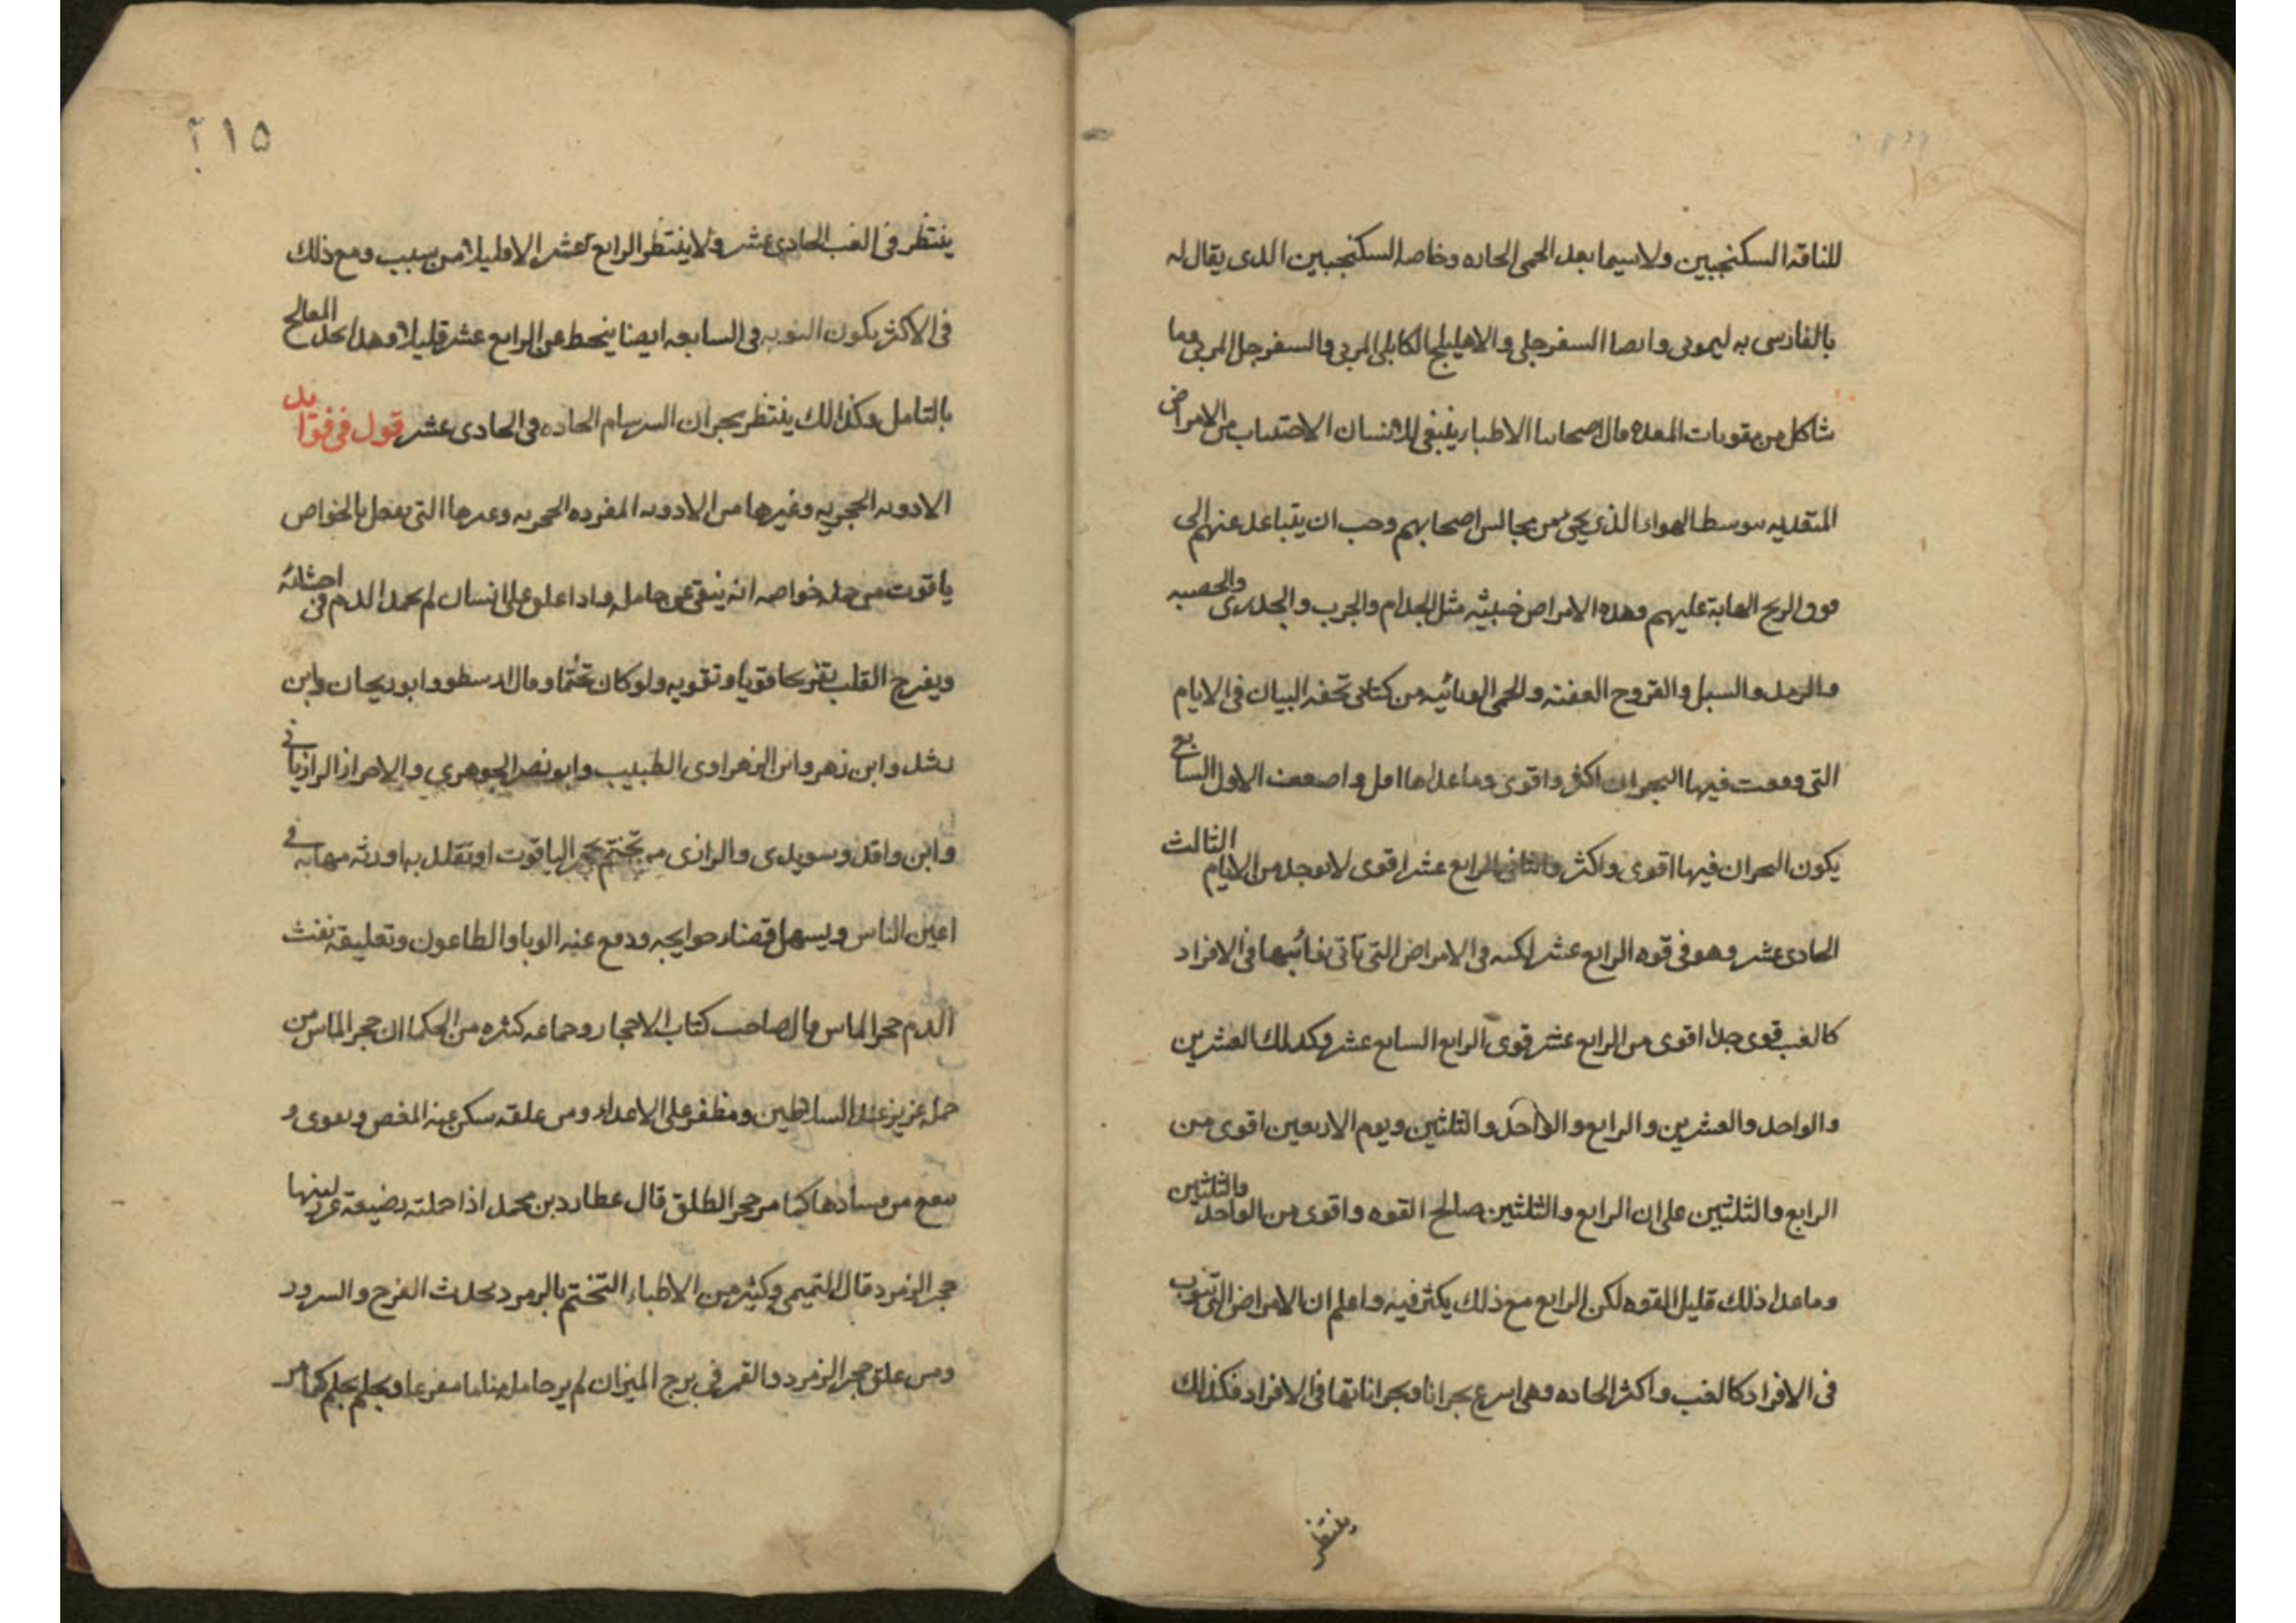 للناقه السكنجبين ولاسيما بعد الحمى الحاده وخاصه السكنجبين الدى يقال له
بالفارسى به ليمونى وايصا السفرجلى والاهليلج الكابلى المربى والسفرجل المربى وما
شاكل من مقويات المعده قال اصحابنا الاطبا ينبغى للانسان الاجتناب من الامراض
المتعديه بتوسط الهواء الذى يجى من مجالس اصحابهم وجب ان يتباعد عنهم الى
فوق الريح الهابة عليهم وهذه الامراض خبيثه مثل الجدام والجرب والجدرى والحصبه
والرمد والسبل والقروح العفنه والحمى الوبائيه من كتابى تحفه البيان فى الايام
التى وقعت فيها البحران اكثر واقوى وما عداها اقل واضعف الاول السابع
يكون البحران فيها اقوى واكثر والثانى الرابع عشر اقوى لا يوجد من الايام الثالث
الحادى عشر وهو فى قوه الرابع عشر لكنه فى الامراض التى تاتى نوائبها فى الافراد
كالغب قوى جدا اقوى من الرابع عشر قوى الرابع السابع عشر وكدلك العشرين
والواحد والعشرين والرابع والواحد والثلثين ويوم الاربعين اقوى من
الرابع والثلثين على ان الرابع والثلثين صالح القوه واقوى من الواحد والثلثين
وما عدا ذلك قليل القوه لكن الرابع مع ذلك يكثر فيه واعلم ان الامراض التى تنوب
فى الافراد كالغب واكثر الحاده وهى اسرع بحرانا وبحراناتها فى الافراد فكذلك
ينتظر
٢١٥
ينتظر فى الغب الحادى عشر ولا ينتظر الرابع عشر الا قليلا من سبب ومع ذلك
فى الاكثر يكون النوبه فى السابعه ايضا ينحط عن الرابع عشر قليلا وهدا يجد المعالج
بالتامل وكذالك ينتظر بحران السرسام الحاده فى الحادى عشر قول فى فوايد
الادويه الحجريه وغيرها من الادويه المفرده الحجريه وغيرها التى يفعل بالخواص
ياقوت من جمله خواصه انه ينقى عن حامله واذا علق على انسان لم يجمد الدم فى احشائه
ويفرح القلب تفريحا قويا وتقويه ولو كان تختما وقال ارسطو وابو ريحان وابن
رشد وابن زهر وابن الزهراوى الطبيب وابو نصر الجوهري والاحراز الرازيانى
وابن واقد وسويدى والرازى من تختم بحجر الياقوت او تقلد به اورثه مهابه فى
اعين الناس ويسهل قضاء حوايجه ودفع عنه الوبا والطاعون وتعليقه نفث
الدم حجر الماس قال صاحب كتاب الاحجار وجماعه كثيره من الحكما ان حجر الماس من
حمله عزيز عند السلاطين ومظفر على الاعداء ومن علقه سكن عنه المغص ويقوى و
يمنع من فسادها كما مر حجر الطلق قال عطارد بن محمد اذا حملته رضيعة غزر لبنها
حجر الزمرد قال التميمى وكثير من الاطباء التختم بالزمرد يحدث الفرح والسرور
ومن علق حجر الزمرد والقمر فى برج الميزان لم ير حامله مناما مفزعا ويحلم بحلم كما مر